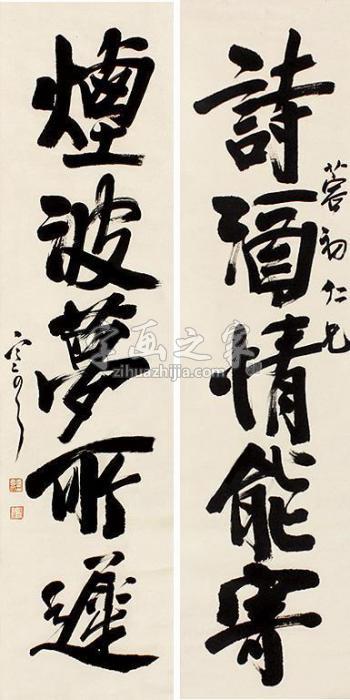 詩酒情能寄
蓉初仁兄
煙波夢所遲
字画之家
zihuazhijia.com